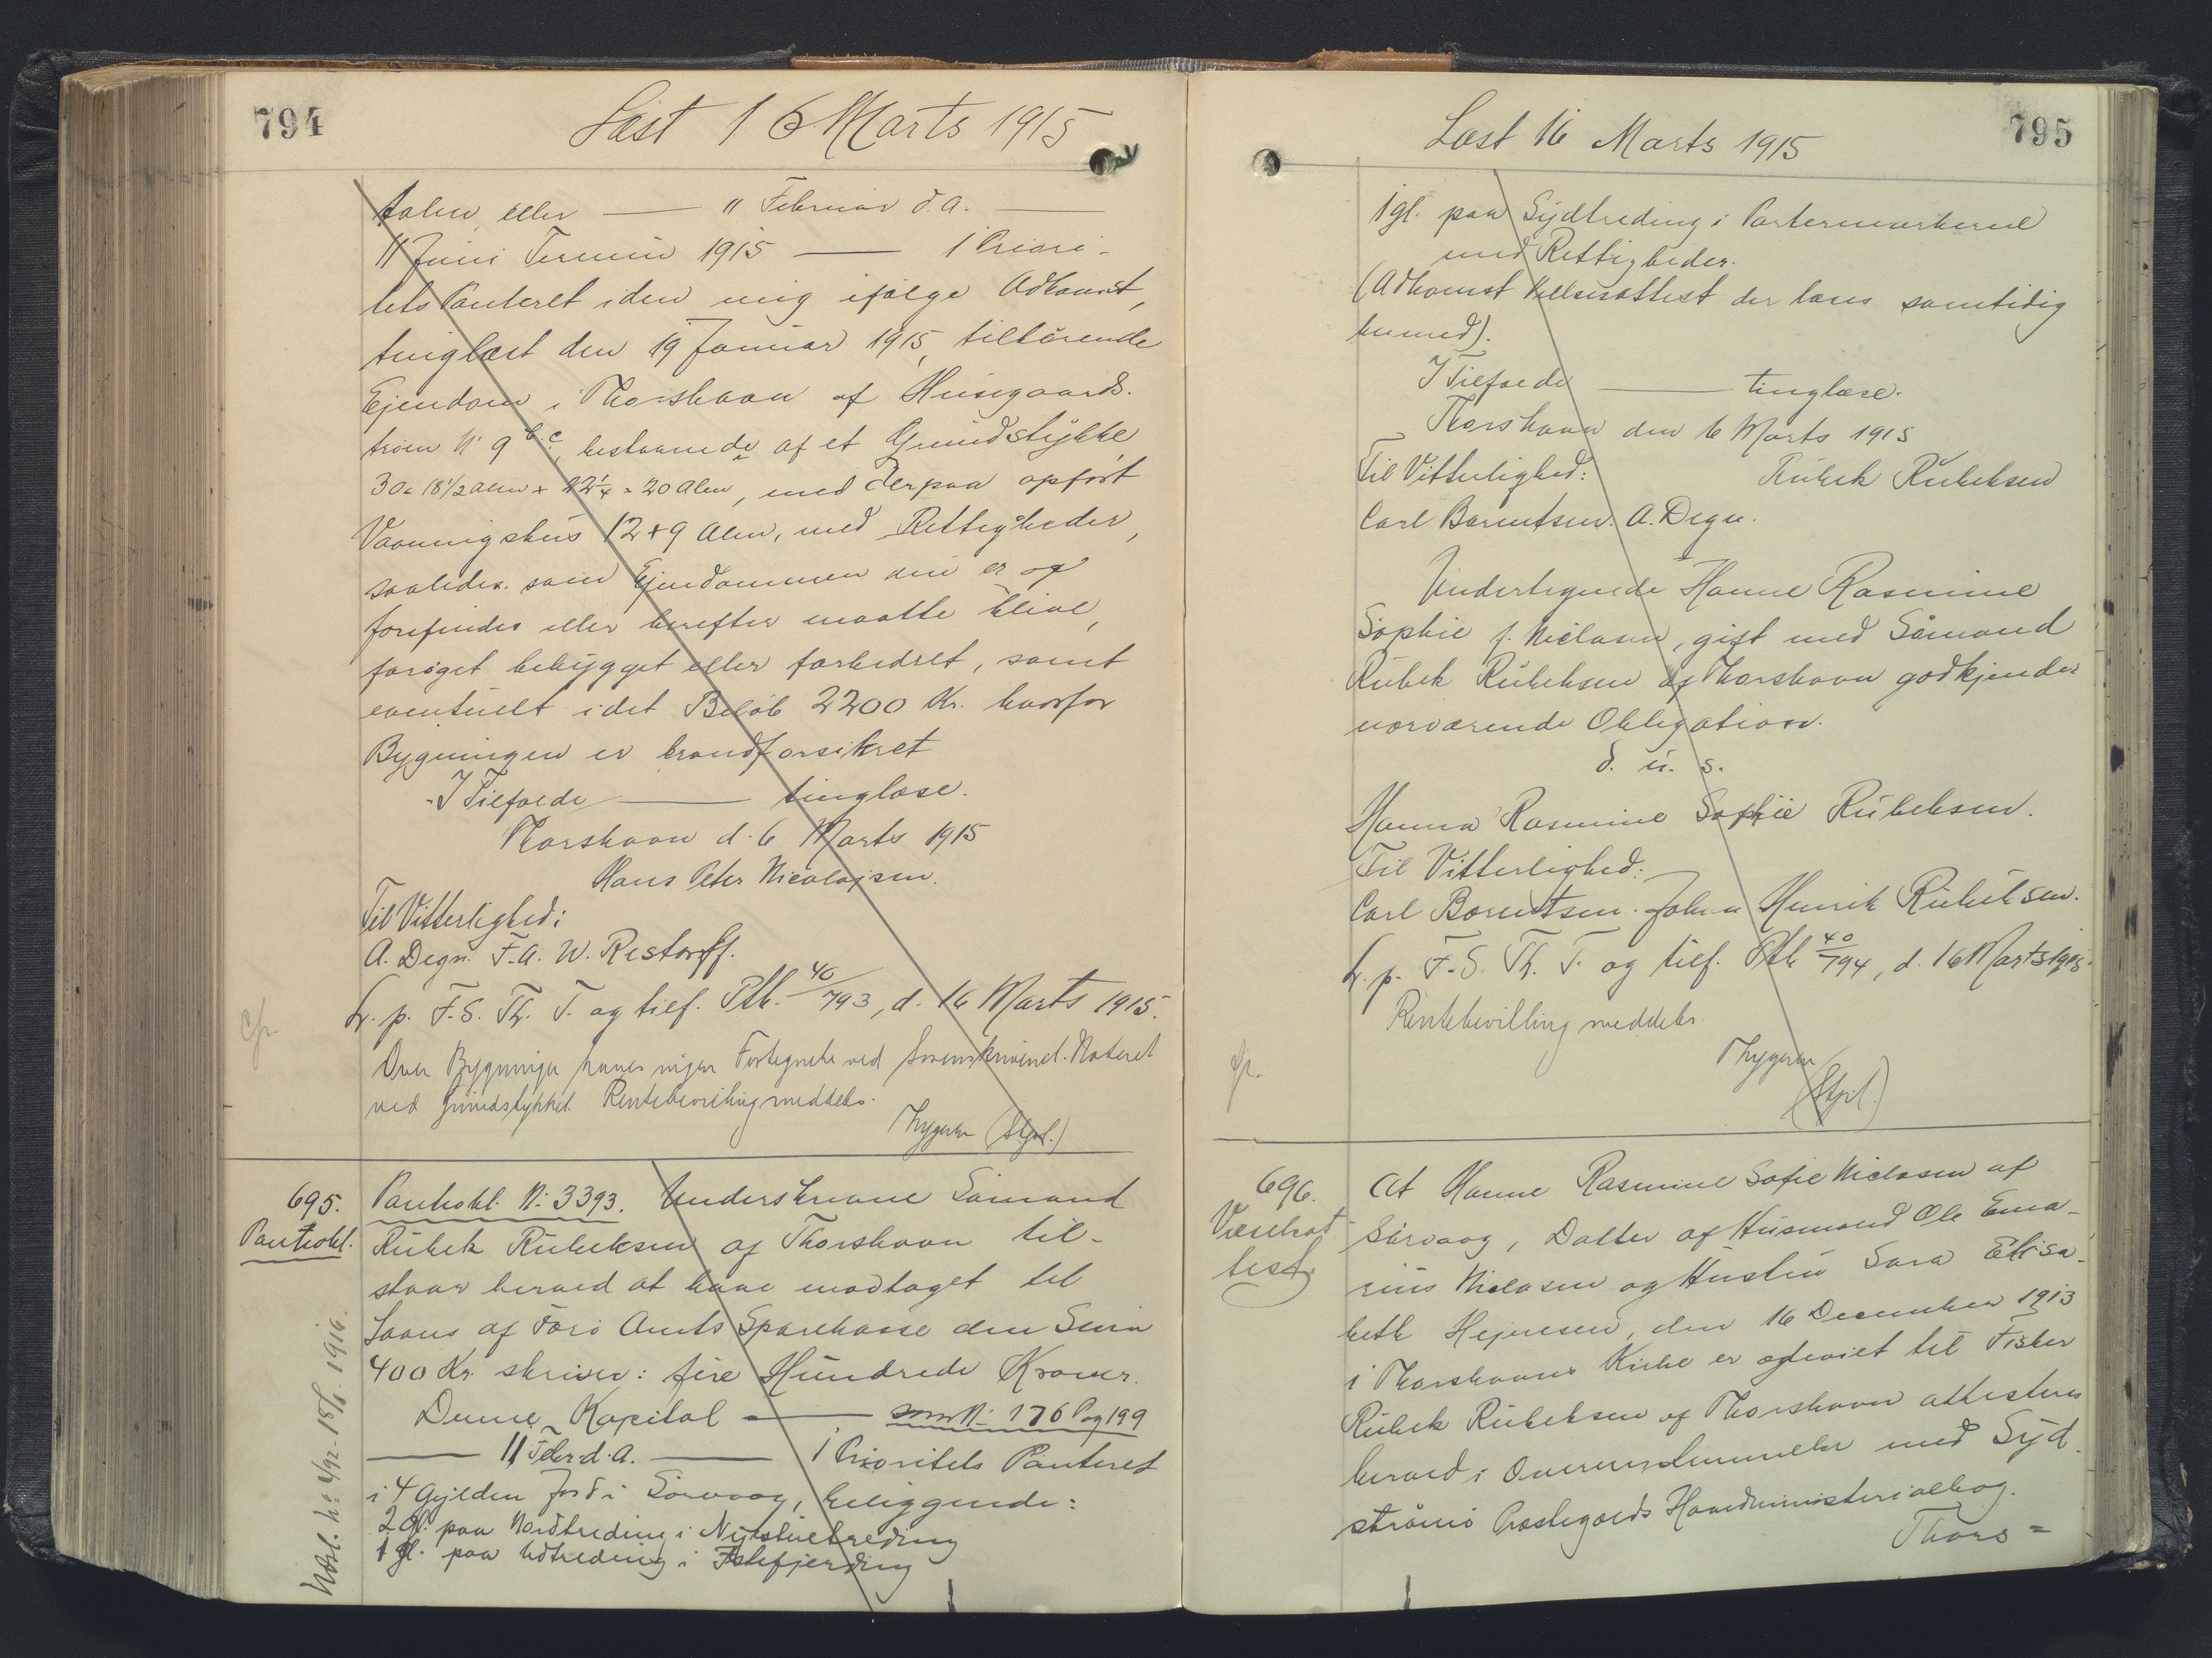 794
Læst 16 Marts 1915
talen, eller — 11 Februar d.A. —
11 Juni Termin 1915 — 1 Priori-
tets Panteret i den mig ifølge Adkomst,
tinglæst den 19 Januar 1915, tilhørende
Ejendom i Thorshavn af Husegaards.
troen N 9 b.c, bestaaende af et Grundstykke
30 = 18 1/2 Alen + 22 1/4 = 20 Alen, med derpaa opført
Vaaningshus 12 + 9 Alen, med Rettigheder,
saaledes som Ejendommen nu er og
forefindes eller herefter maatte blive,
forøget bebygget eller forbedret, samt
eventuelt i det Beløb 2200 Kr. hvorfor
Bygningen er brandforsikret
I Tilfælde — tinglæse.
Thorshavn d. 6 Marts 1915
Hans Peter Nicolajsen.
Til Vitterlighed:
A. Degn. F. A. W. Restorff.
L. p. F. S. Th. T. og tilf. Ptb. 40/793, d. 16 Marts 1915.
cfr.
Over Bygninger haves ingen Fortegnelse ved Sorenskriveriet. Noteret
ved Grundstykket. Rentebevilling meddeles.
Thygesen (Stpl.)
695.
Pantobl.
Pantobl. N. 3393. Underskrevne Sømand
Rubek Rubeksen af Thorshavn til-
staar herved at have modtaget til
Laans af Færø Amts Sparekasse den Sum
400 Kr. skriver: fire Hundrede Kroner.
Denne Kapital — som N. 176 Pag 199
— 11 Febr. d. A. — 1 Prioritets Panteret
i 4 Gylden Jord i Sørvaag, beliggende:
2 Gl. paa Nordtreding i Nystuetreding
1 gl. paa Udtreding i Fjerding
Udsl. N: 4/92 - 18/1. 1916.
795
Læst 16 Marts 1915
1 gl. paa Sydtreding i Partermarkerne
med Rettigheder.
(Adkomst Vielsesattest der læses samtidig
hermed).
I Tilfælde — tinglæse.
Thorshavn den 6 Marts 1915
Til Vitterlighed: Rubek Rubeksen
Carl Barentsen. A. Degn.
Undertegnede Hanne Rasmine
Sophie f. Niclasen, gift med Sømand
Rubek Rubeksen af Thorshavn godkjender
nærværende Obligation.
d. u. s.
Hanna Rasmine Sophie Rubeksen.
Til Vitterlighed:
Carl Barentsen. Johan Henrik Rubeksen.
L. p. F. S. Th. T. og tilf. Ptb 40/794, d. 16 Marts 1915.
Rentebevilling meddeles.
cfr.
Thygesen
(Stpl.)
696.
Vielsesat-
test.
At Hanne Rasmine Sofie Niclasen af
Sørvaag, Datter af Husmand Ole Ema-
rius Niclasen og Hustru Sara Elisa-
beth Hejnesen, den 16 December 1913
i Thorshavns Kirke er ægteviet til Fisker
Rubek Rubeksen af Thorshavn attesteres
herved i Overensstemmelse med Syd-
strømø Præstegjælds Hovedministerialbog.
Thors=